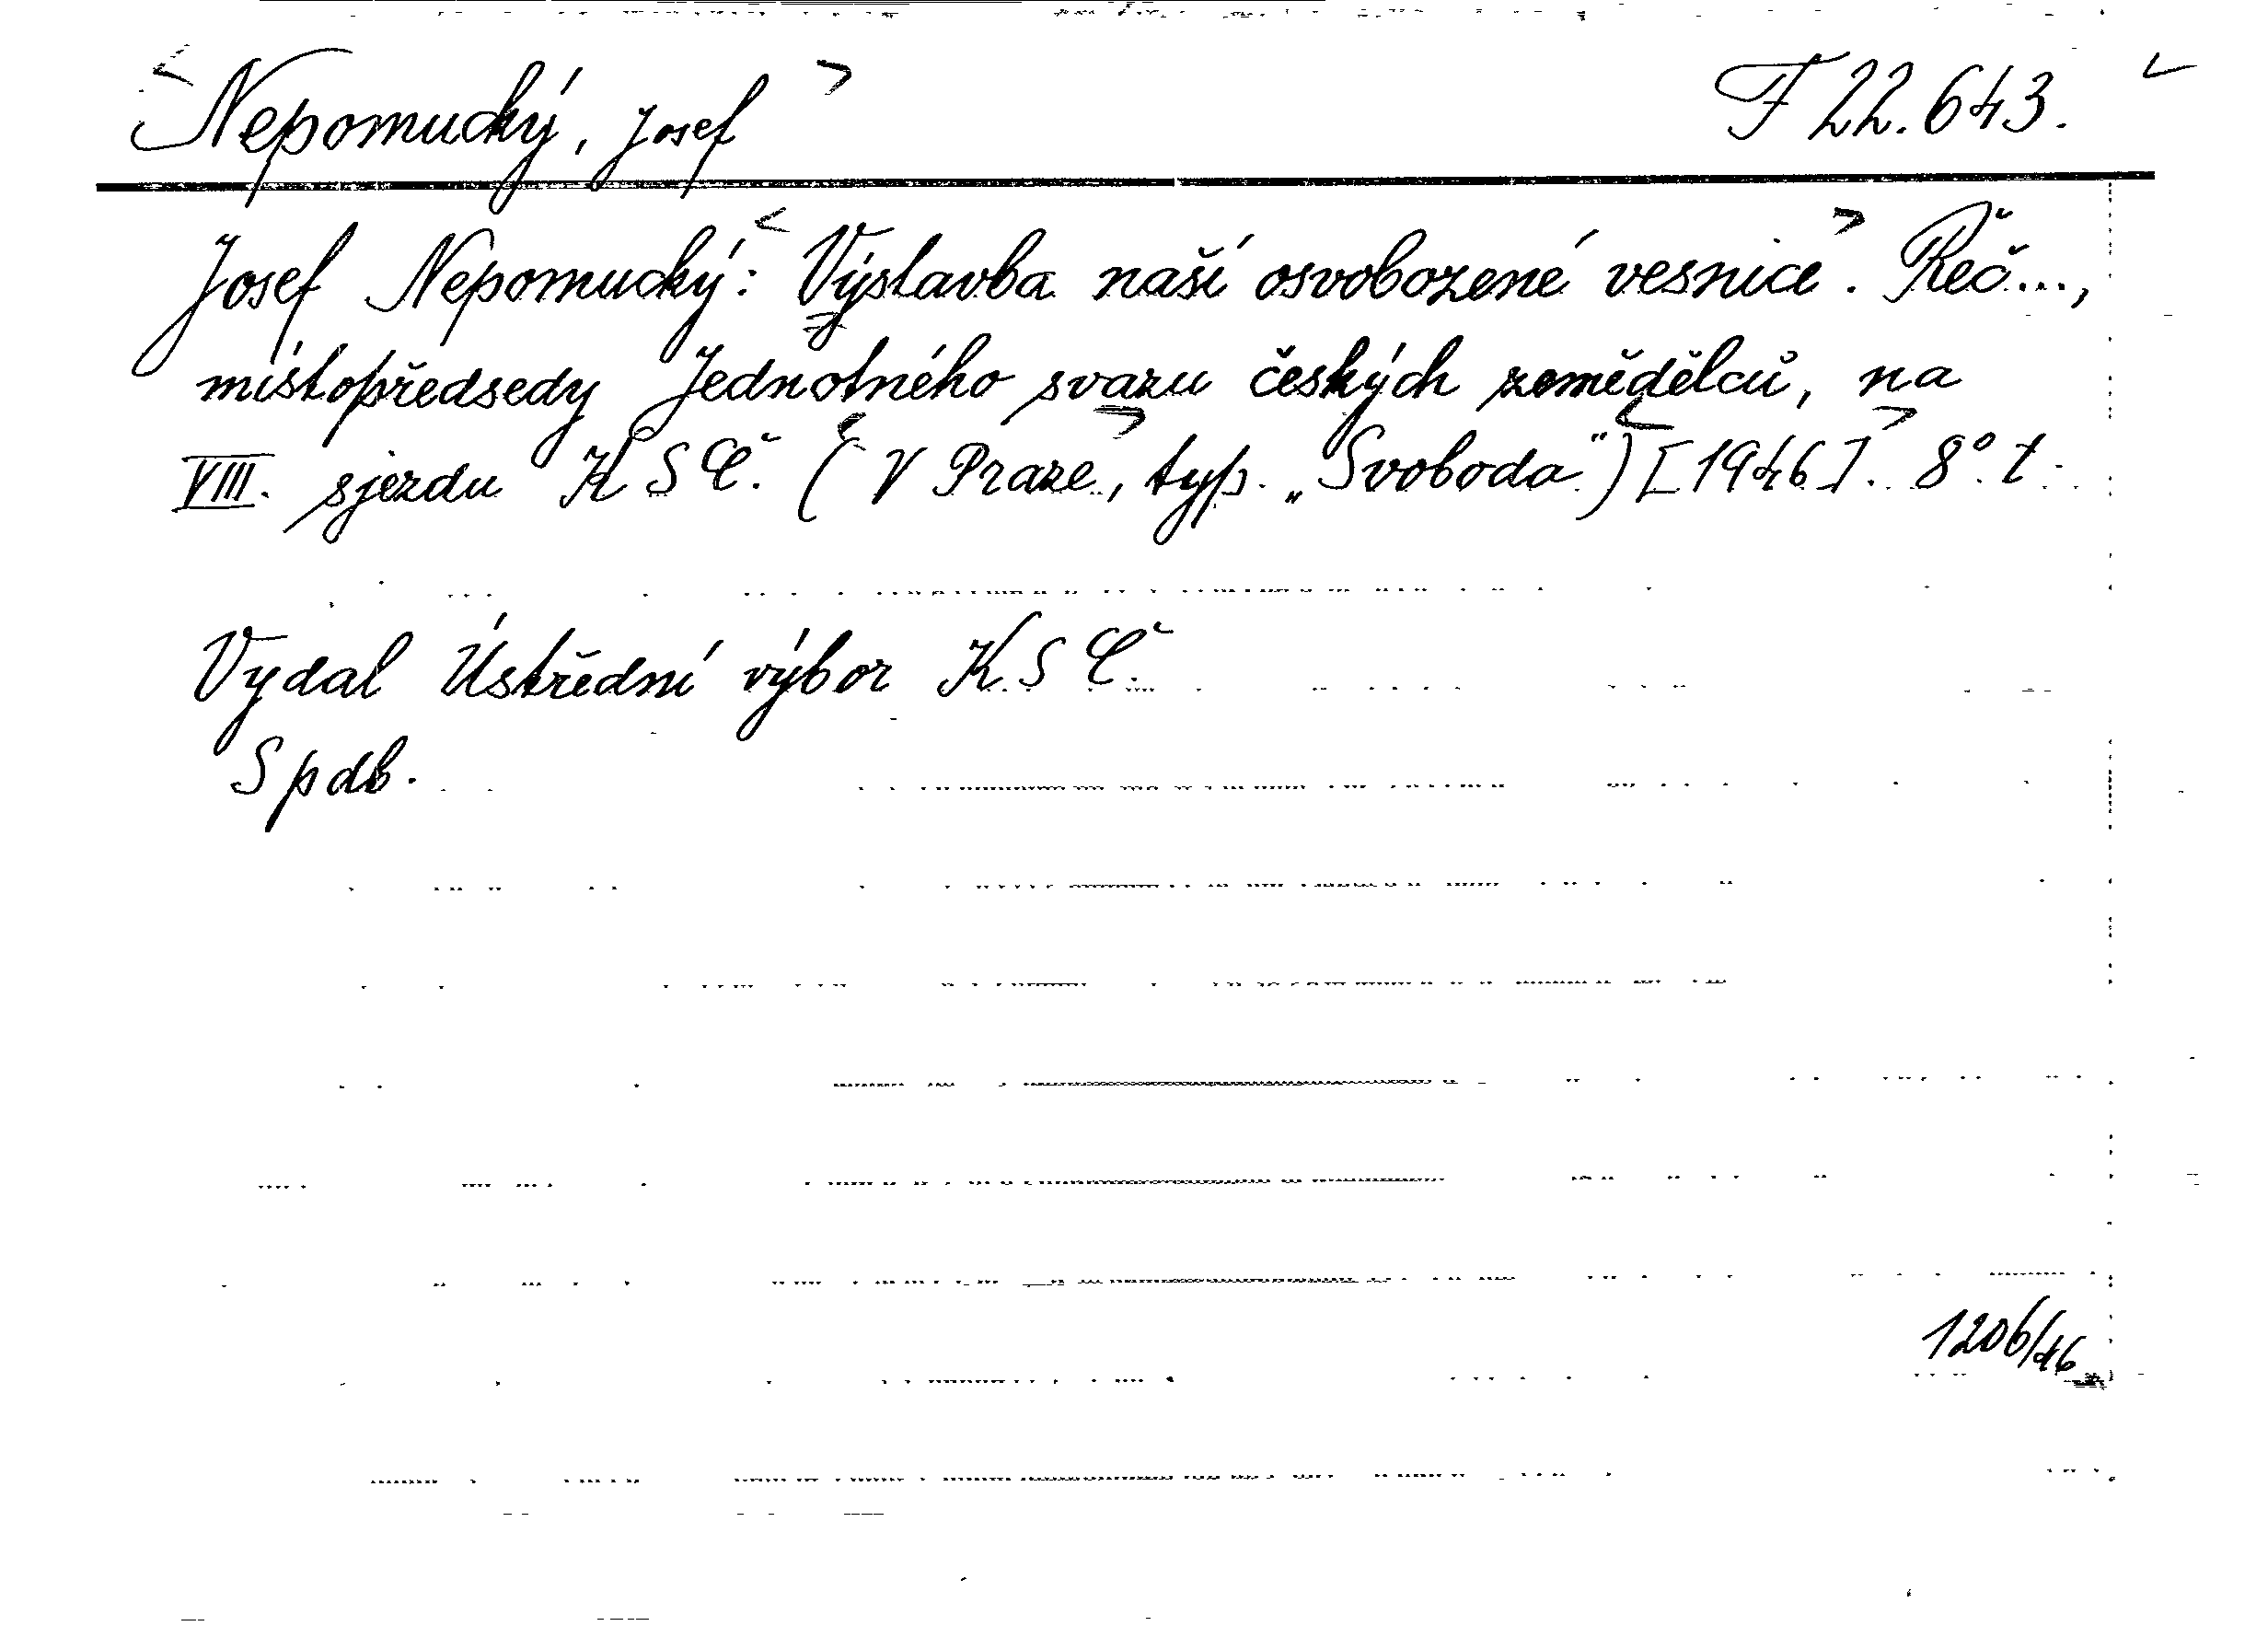 Nepomucký, Josef
F 22.643.
Josef Nepomucký: Výstavba naší osvobozené vesnice. Řeč...,
místopředsedy Jednotného svazu českých zemědělců, na
VIII. sjezdu KSČ. (V Praze, typ. „Svoboda") [1946]. 8°. t.
Vydal Ústřední výbor KSČ.
S pdb.
1206/46